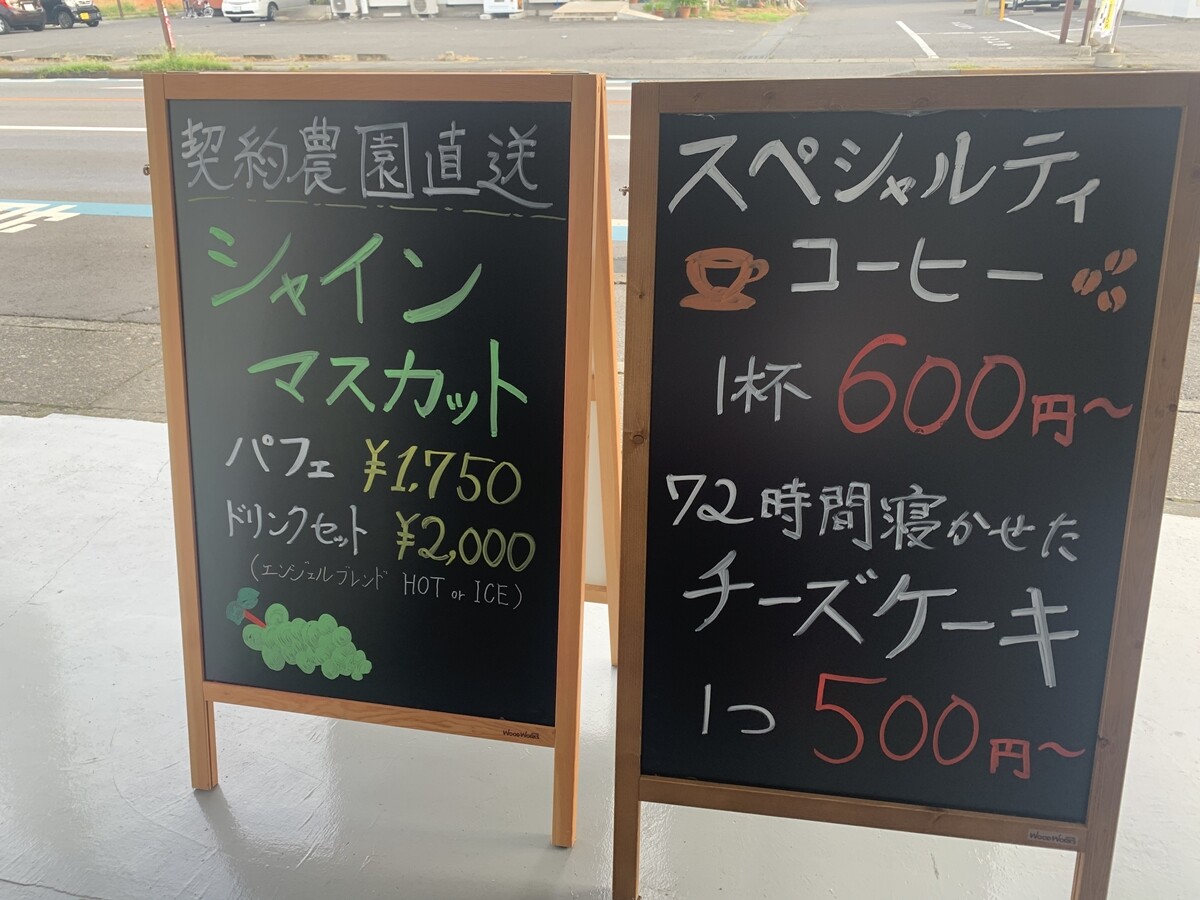 契約農園直送
シャイン
マスカット
パフェ ¥1,750
ドリンクセット ¥2,000
(エンジェルブレンド HOT or ICE)
WoodWorks
スペシャルティ
コーヒー
1杯 600円〜
72時間寝かせた
チーズケーキ
1つ 500円〜
WoodWorks